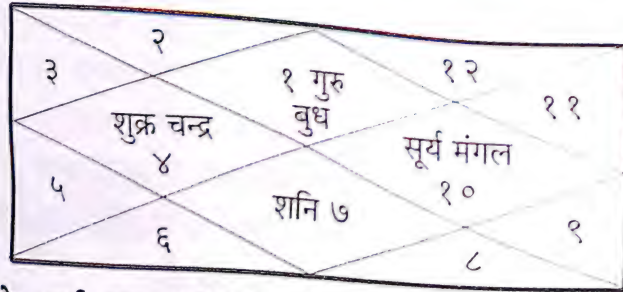 २
३
१ गुरु
बुध
१२
११
शुक्र चन्द्र
४
सूर्य मंगल
१०
५
शनि ७
६
८
९